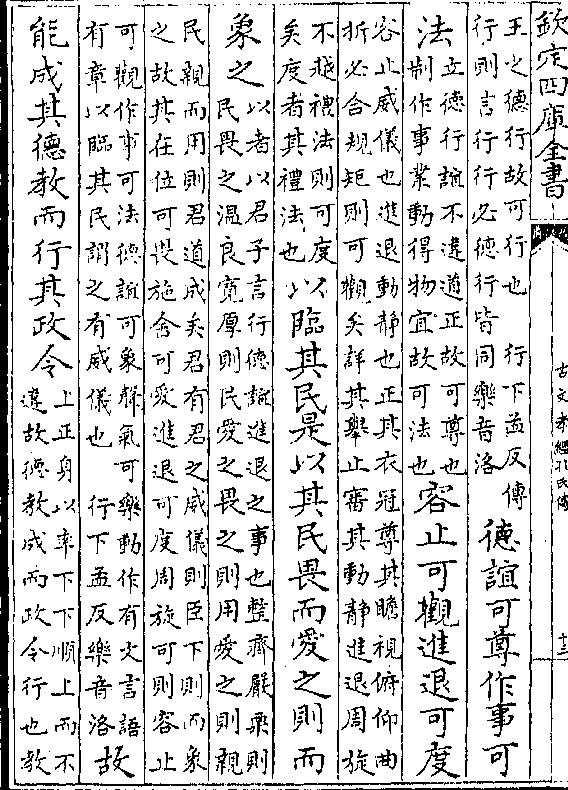 欽定四庫全書
古文孝經孔氏傳
十三
王之德行故可行也 行下孟反傳
行則言行行必德行皆同樂音洛
德誼可尊作事可
法
立德行誼不違道正故可尊也
制作事業動得物宜故可法也
容止可觀進退可度
容止威儀也進退動靜也正其衣冠尊其瞻視俯仰曲
折必合規矩則可觀矣詳其舉止審其動靜進退周旋
不越禮法則可度
矣度者其禮法也
以臨其民是以其民畏而愛之則而
象之
以者以君子言行德誼進退之事也整齊嚴栗則
民畏之溫良寬厚則民愛之畏之則用愛之則親
民親而用則君道成矣君有君之威儀則臣下則而象
之故其在位可畏施舍可愛進退可度周旋可則容止
可觀作事可法德誼可象聲氣可樂動作有文言語
有章以臨其民謂之有威儀也 行下孟反樂音洛
故
能成其德教而行其政令
上正身以率下下順上而不
違故德教成而政令行也教